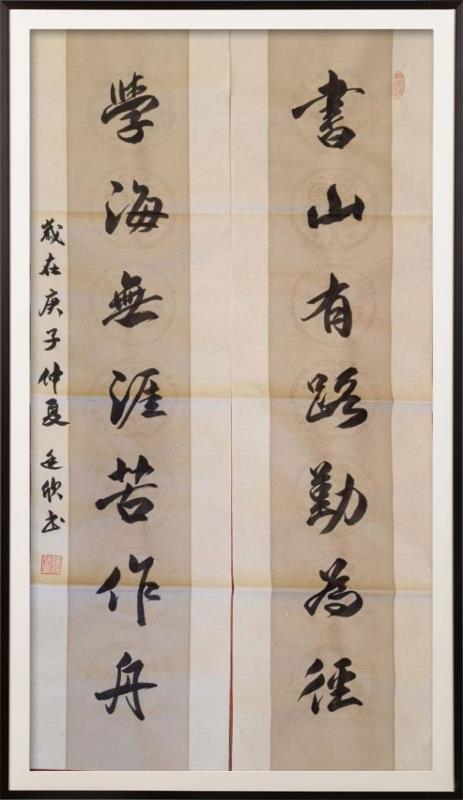 書山有路勤為徑
學海無涯苦作舟
歲在庚子仲夏